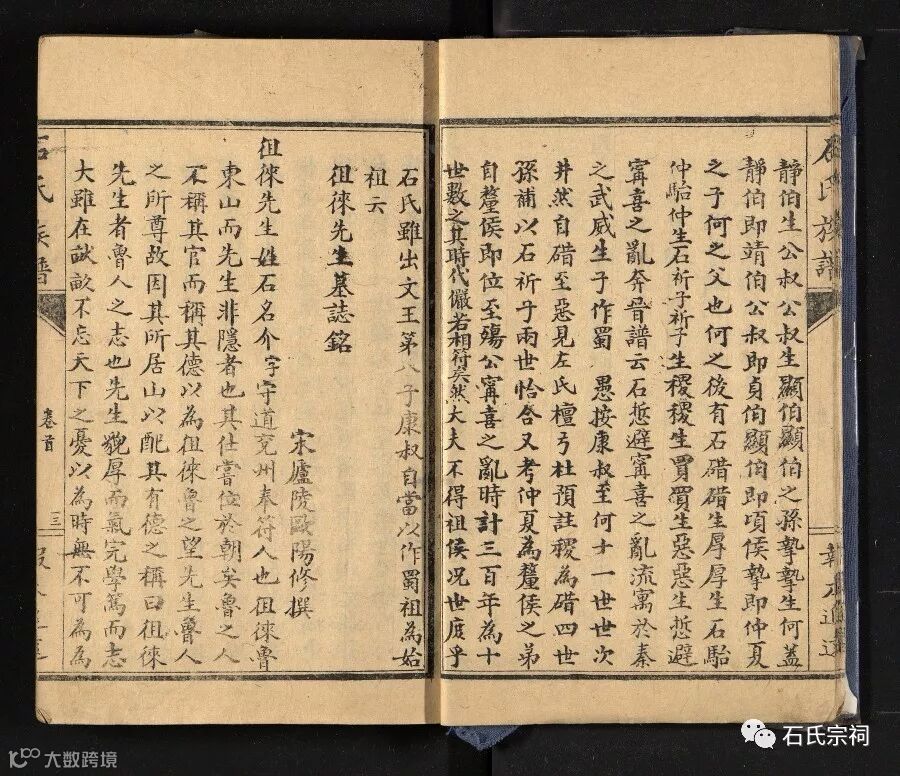 石氏族譜
靜伯生公叔公叔生顯伯顯伯之孫摯摯生何蓋
靜伯即靖伯公叔即貞伯顯伯即項侯摯即仲夏
之子何之父也何之後有石碏碏生厚厚生石駘
仲駘仲生石祁子祁子生稷稷生買買生惡惡生悊避
甯喜之亂奔晉譜云石悊避甯喜之亂流寓於秦
之武威生子作蜀　愚按康叔至何十一世世次
井然自碏至惡見左氏檀弓杜預註稷為碏四世
孫補以石祁子兩世恰合又考仲夏為釐侯之弟
自釐侯即位至殤公甯喜之亂時計三百年為十
世數之其時代儼若相符矣然大夫不得祖侯况世度乎
石氏雖出文王第八子康叔自當以作蜀祖為始
祖云
徂徠先生墓誌銘
宋廬陵歐陽修撰
徂徠先生姓石名介字守道兖州奉符人也徂徠魯
東山而先生非隱者也其仕嘗位於朝矣魯之人
不稱其官而稱其德以為徂徠魯之望先生魯人
之所尊故因其所居山以配其有德之稱曰徂徠
先生者魯人之志也先生貌厚而氣完學篤而志
大雖在畎畝不忘天下之憂以為時無不可為為
石氏族譜
卷首
三
石氏宗祠
大数跨境